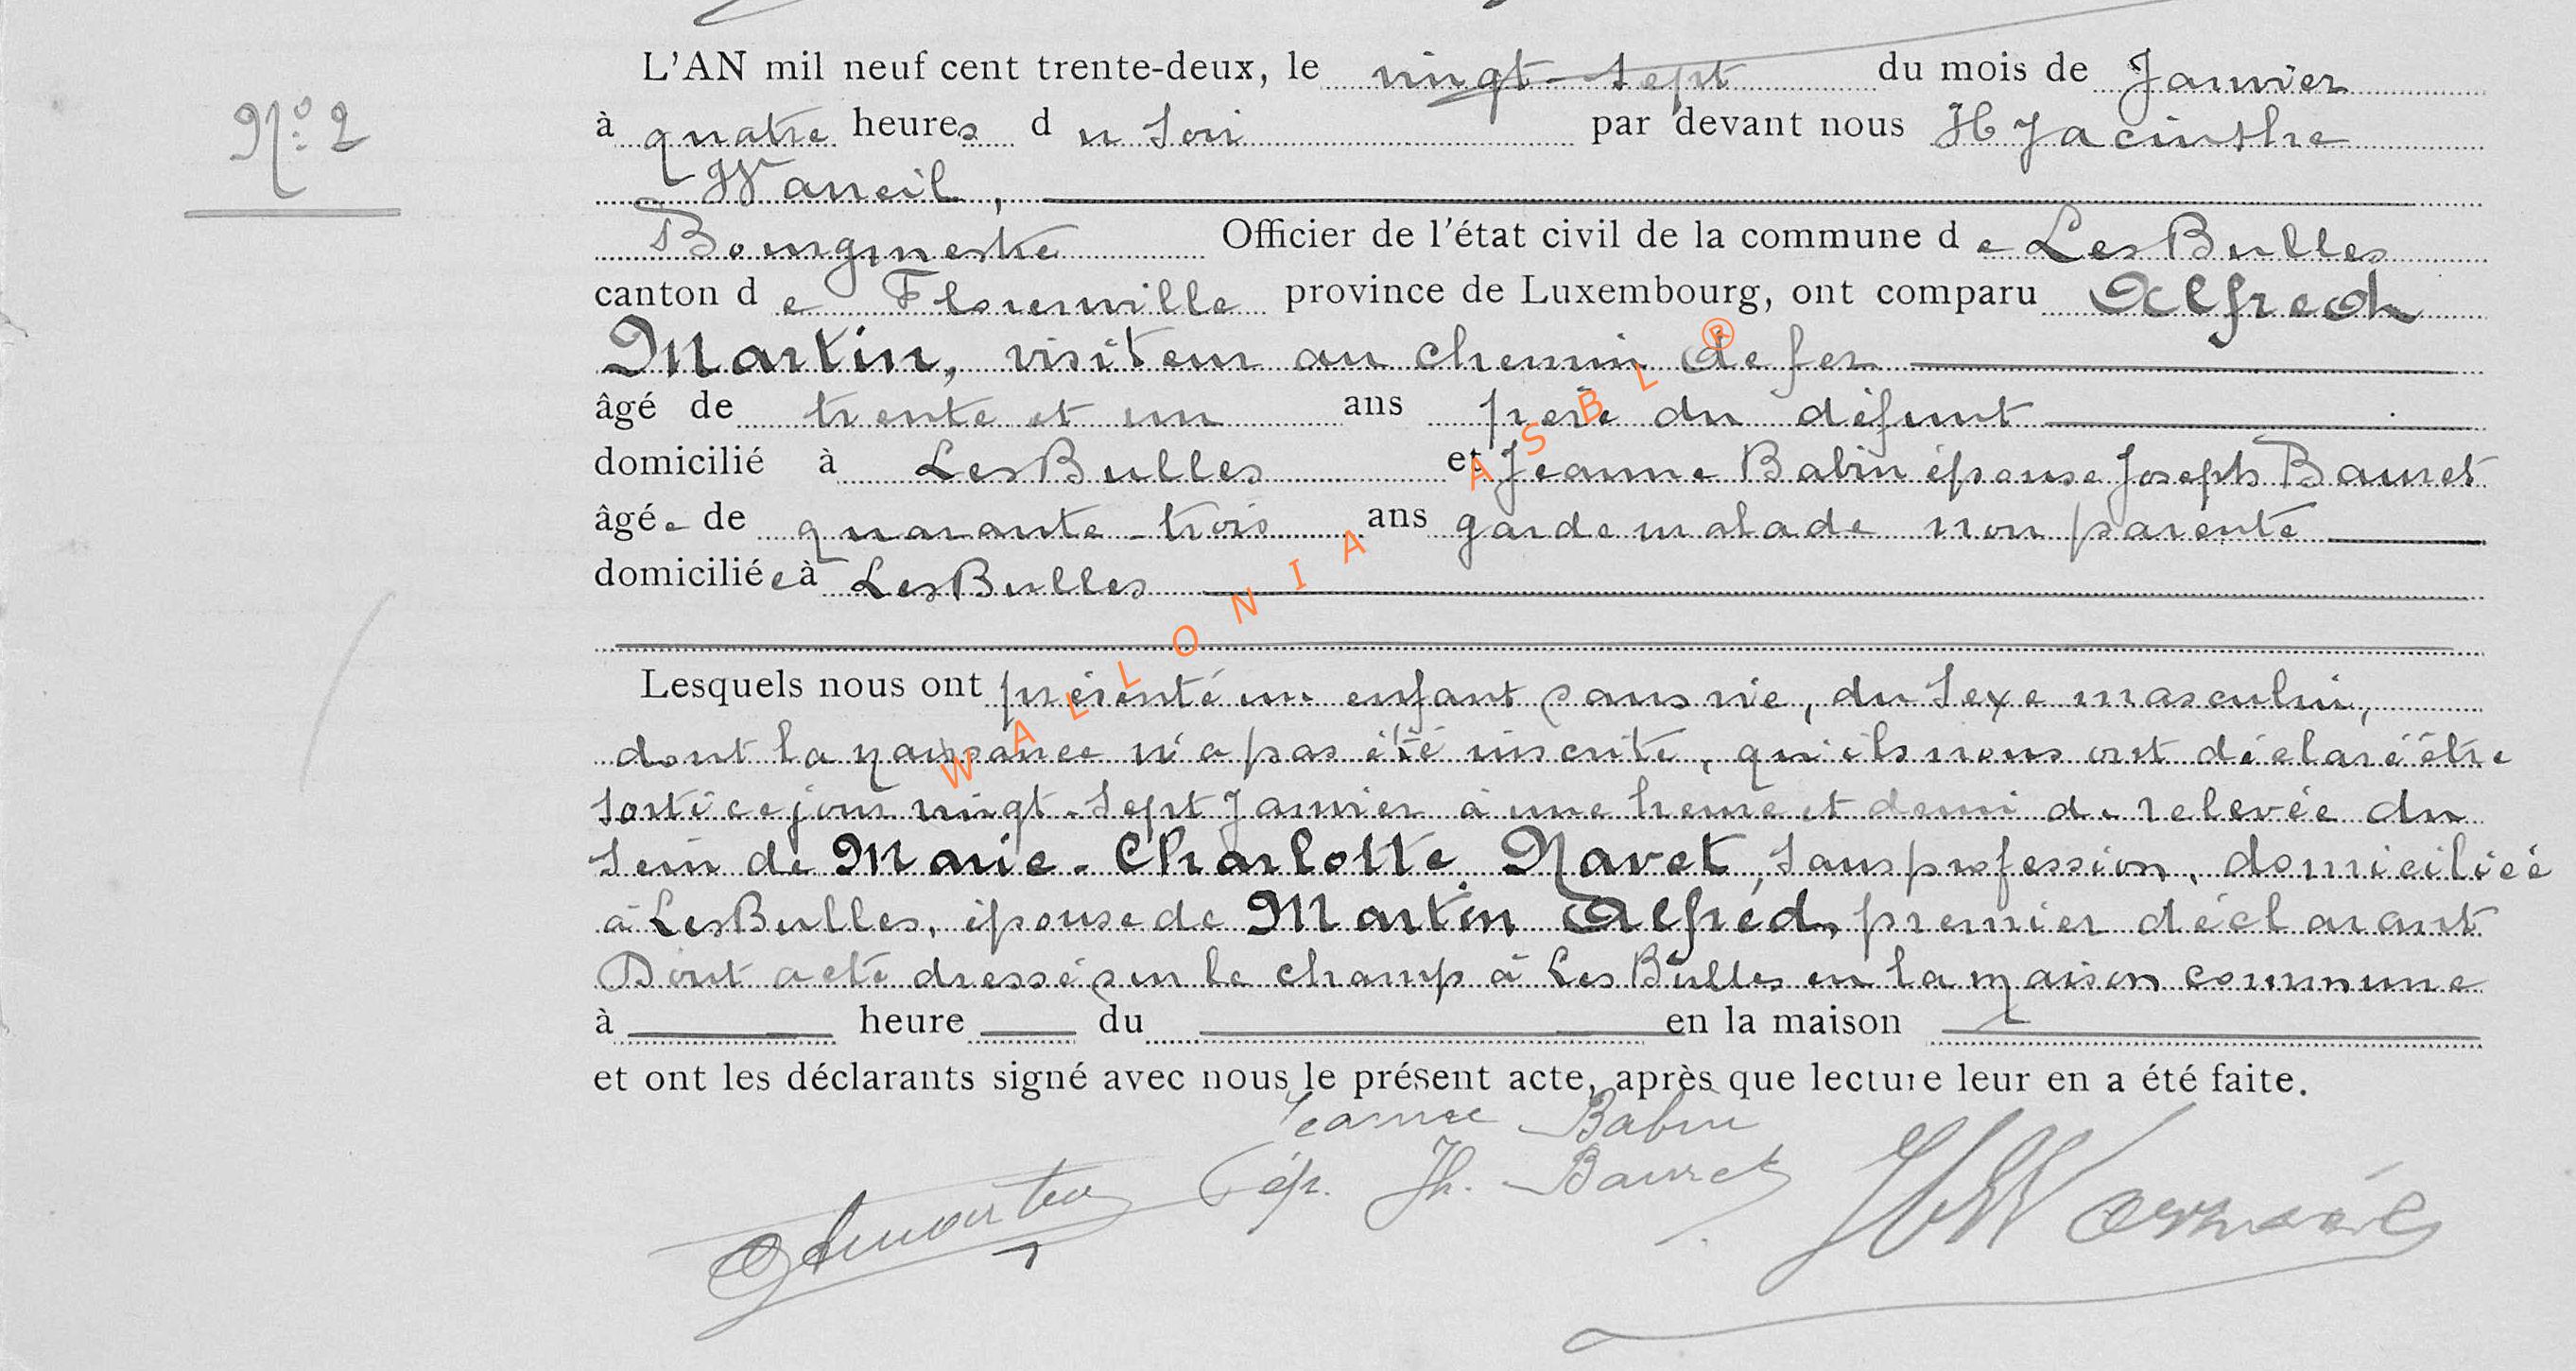 L'AN mil neuf cent trente-deux, le vingt-sept du mois de Janvier
N° 2
à quatre heures du soir par devant nous Hyacinthe
Waneil,
Bourgmestre Officier de l'état civil de la commune de Les Bulles
canton de Florenville province de Luxembourg, ont comparu Alfred
Martin, visiteur au chemin de fer
âgé de trente et un ans père du défunt
domicilié à Les Bulles et Jeanne Babin épouse Joseph Bauret
âgée de quarante-trois ans garde malade non parente
domiciliée à Les Bulles
Lesquels nous ont présenté un enfant sans vie, du sexe masculin,
dont la naissance n'a pas été inscrite, qu'ils nous ont déclaré être
sorti ce jour vingt-sept Janvier à une heure et demi de relevée du
sein de Marie-Charlotte Navet, sans profession, domiciliée
à Les Bulles, épouse de Martin Alfred, premier déclarant
Dont acte dressé sur le champ à Les Bulles en la maison commune
à heure du en la maison
et ont les déclarants signé avec nous le présent acte, après que lecture leur en a été faite.
Jeanne Babin
ép. Jh. Bauret
WALLONIA ASBL ®